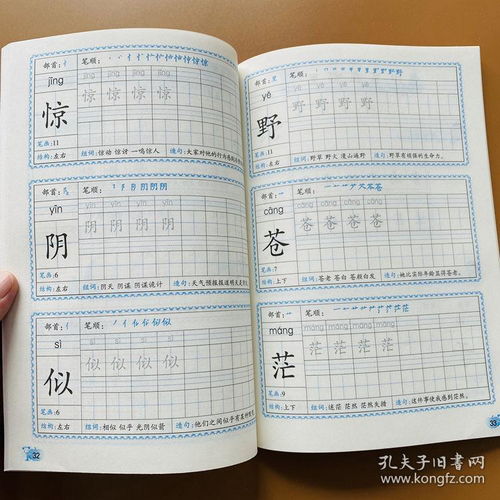 部首:忄 笔顺:
jīng jīng jīng jīng jīng
惊 惊 惊 惊 惊
笔画:11
结构:左右 组词:惊动 惊讶 一鸣惊人 造句:大家对他的行为感到
部首:阝 笔顺:
yīn yīn yīn yīn yīn
阴 阴 阴 阴 阴
笔画:6
结构:左右 组词:阴天 阴谋 阴谋诡计 造句:天气预报报道明天
部首:亻 笔顺:
sì sì sì sì sì
似 似 似 似 似
笔画:6
结构:左右 组词:相似 似乎 光阴似箭 造句:他们之间似乎有某种
32
部首:里 笔顺:
yě yě yě yě yě
野 野 野 野 野
笔画:11
结构:左右 组词:野草 野火 漫山遍野 造句:野草有顽强的生命力。
部首:艹 笔顺:
cāng cāng cāng cāng cāng
苍 苍 苍 苍 苍
笔画:7
结构:上下 组词:苍老 苍白 苍颜白发 造句:她比实际年龄显得苍老。
部首:艹 笔顺:
máng máng máng máng máng
茫 茫 茫 茫 茫
笔画:9
结构:上下 组词:迷茫 茫然 茫然失措 造句:这件事使我感到茫然。
33
孔夫子旧书网
www.kongfz.com